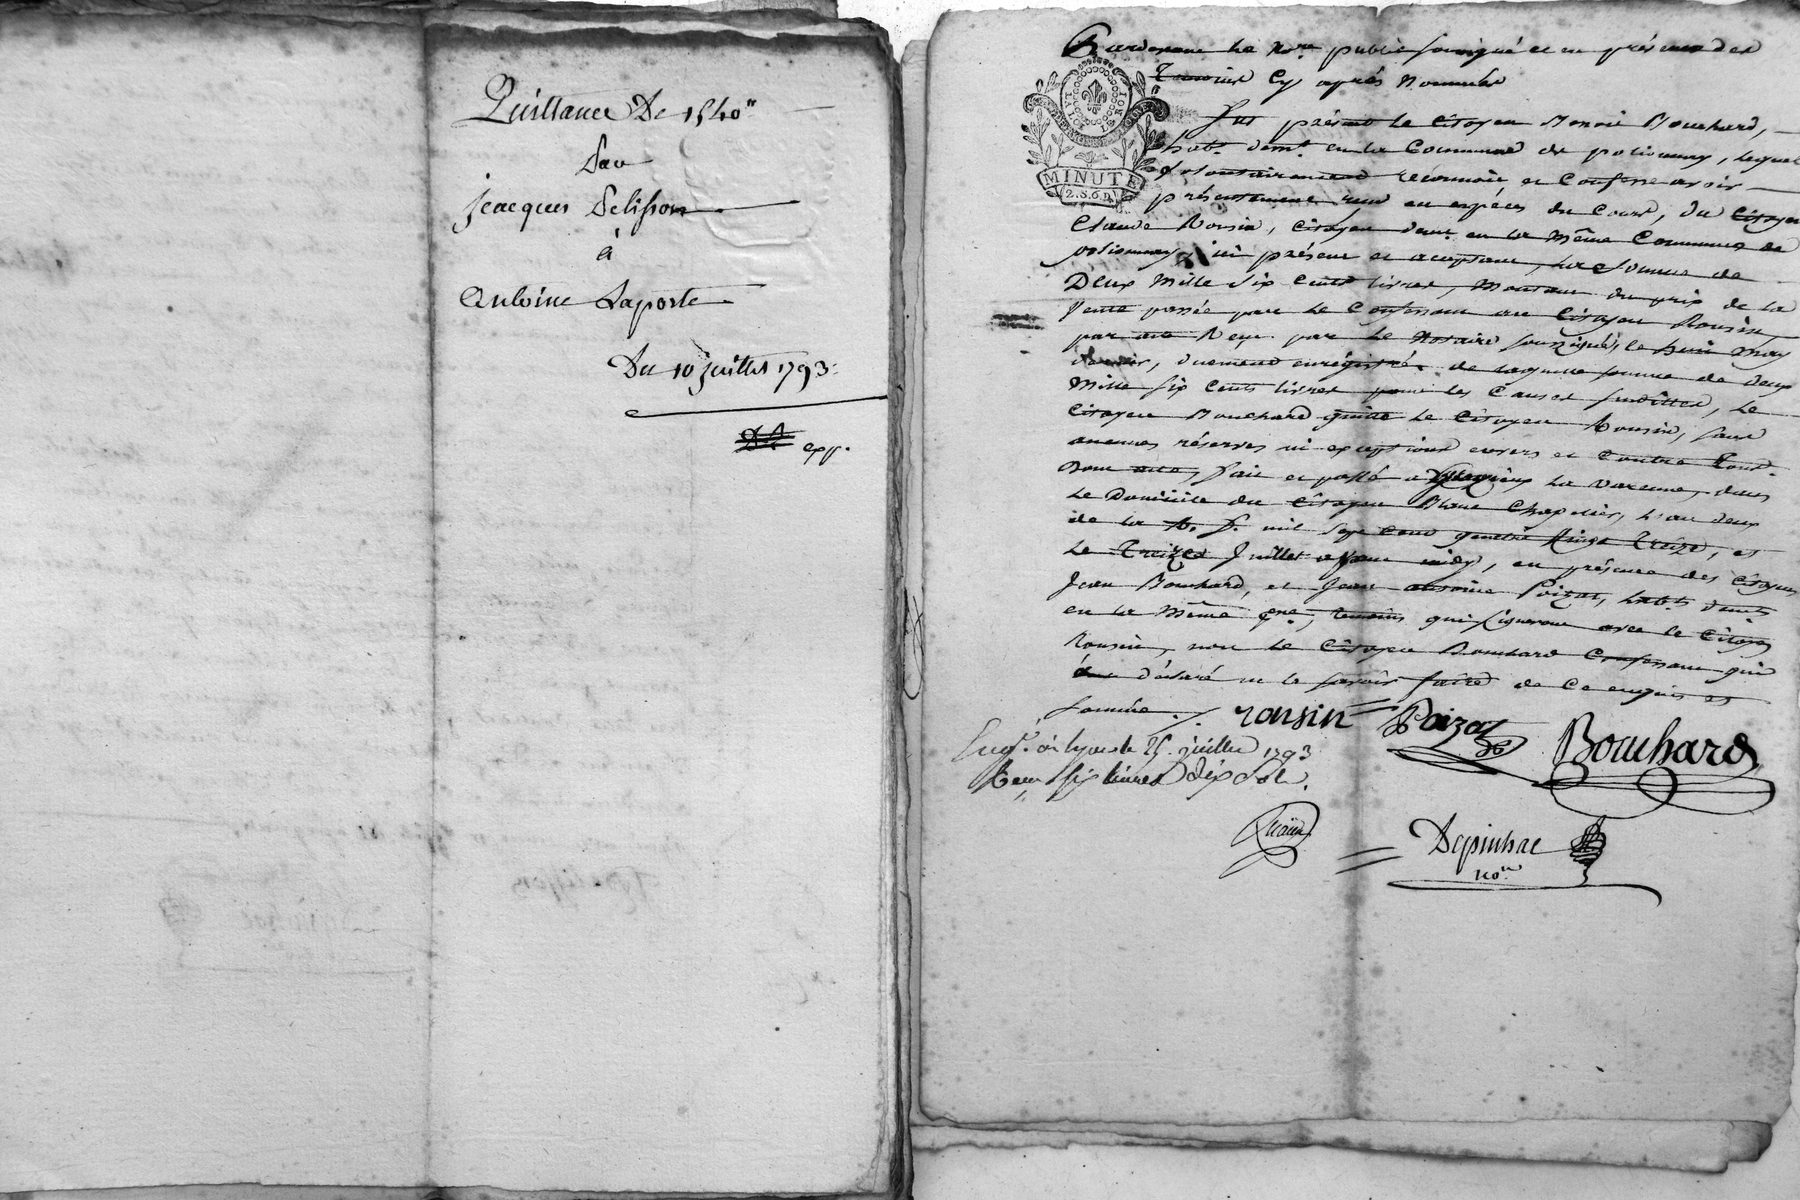 Quittance De 1540ᵗᵗ
Par
jeacques Pelisson
à
Antoine Laporte
Du 10 juillet 1793.
exp.
Pardevant le Nore public soussigné et en présence des
Temoins Cy après Nommés
LA LOI LE ROI
MINUTE
2.S.6.D.
Fut présent le Citoyen Benoit Bouchard,
habt. demt. en la Commune de polionnay, lequel
volontairement reconnoit et Confesse avoir
présentement reçu en espèces du Cours, du Citoyen
Claude Ronsin, Citoyen demt. en la Même Commune de
polionnay, ici présent et acceptant, la somme de
Deux Mille Six Cents livres, Montant du prix de la
Vente passée par le Confessant au Citoyen Ronsin
par acte Reçu par le Notaire soussigné, le huit May
dernier, duement enrégistré, de laquelle somme de deux
Mille six Cents livres pour les Causes susdittes, le
Citoyen Bouchard quitte le Citoyen Ronsin, sans
aucunes réserves ni exceptions envers et Contre tous.
Dont acte, fait et passé a la Varenne, dans
le Domicile du Citoyen Blanc Chapelier, L'an deux
de la R. f. mil sept cent quatre vingt Treize, et
le Treize Juillet avant midy, en présence des Citoyens
Jean Bouchard, et Jean antoine Poizat, habts. demts.
en la Même Cne, temoins qui signeront avec le Citoyen
Ronsin, non le Citoyen Bouchard Confessant qui
a déclaré ne le savoir faire de Ce enquis et
sommé.
ronsin Poizat Bouchard
Enrgt. à lyon le 25 juillet 1793
Reçu six livres dix sols.
Depinhac
Nore